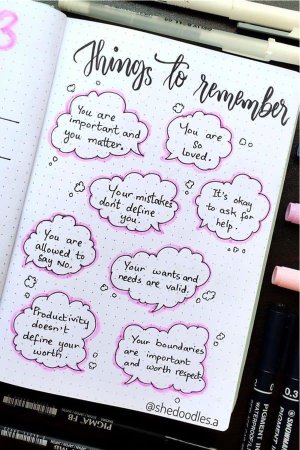 3
Things to remember
You are
important and
you matter.
You are
so
loved.
Your mistakes
don't define
you.
It's okay
to ask for
help.
You are
allowed to
Say No.
Your wants and
needs are valid.
Productivity
doesn't
define your
worth.
Your boundaries
are important
and worth respect
@shedoodles.a
PIGMA_FB
PIGMENT
WATERPROOF
0.3